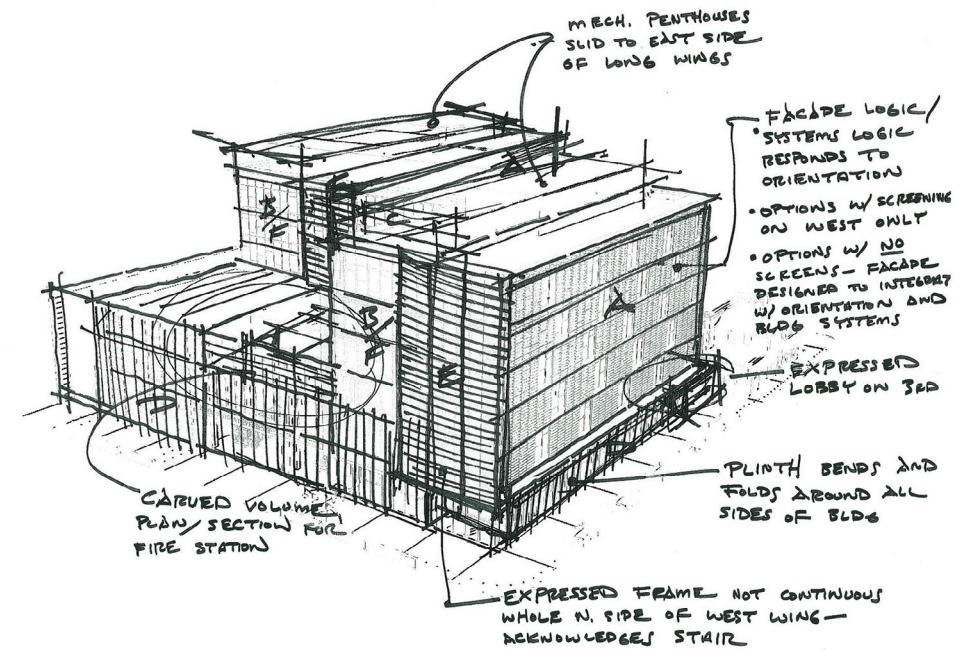 MECH. PENTHOUSES
SLID TO EAST SIDE
OF LONG WINGS
FACADE LOGIC/
• SYSTEMS LOGIC
RESPONDS TO
ORIENTATION
• OPTIONS W/ SCREENING
ON WEST ONLY
• OPTIONS W/ NO
SCREENS - FACADE
DESIGNED TO INTEGRAT
W/ ORIENTATION AND
BLDG SYSTEMS
EXPRESSED
LOBBY ON 3RD
PLINTH BENDS AND
FOLDS AROUND ALL
SIDES OF BLDG
CARVED VOLUME
PLAN/SECTION FOR
FIRE STATION
EXPRESSED FRAME NOT CONTINUOUS
WHOLE N. SIDE OF WEST WING -
ACKNOWLEDGES STAIR
A
C
B/
E
D